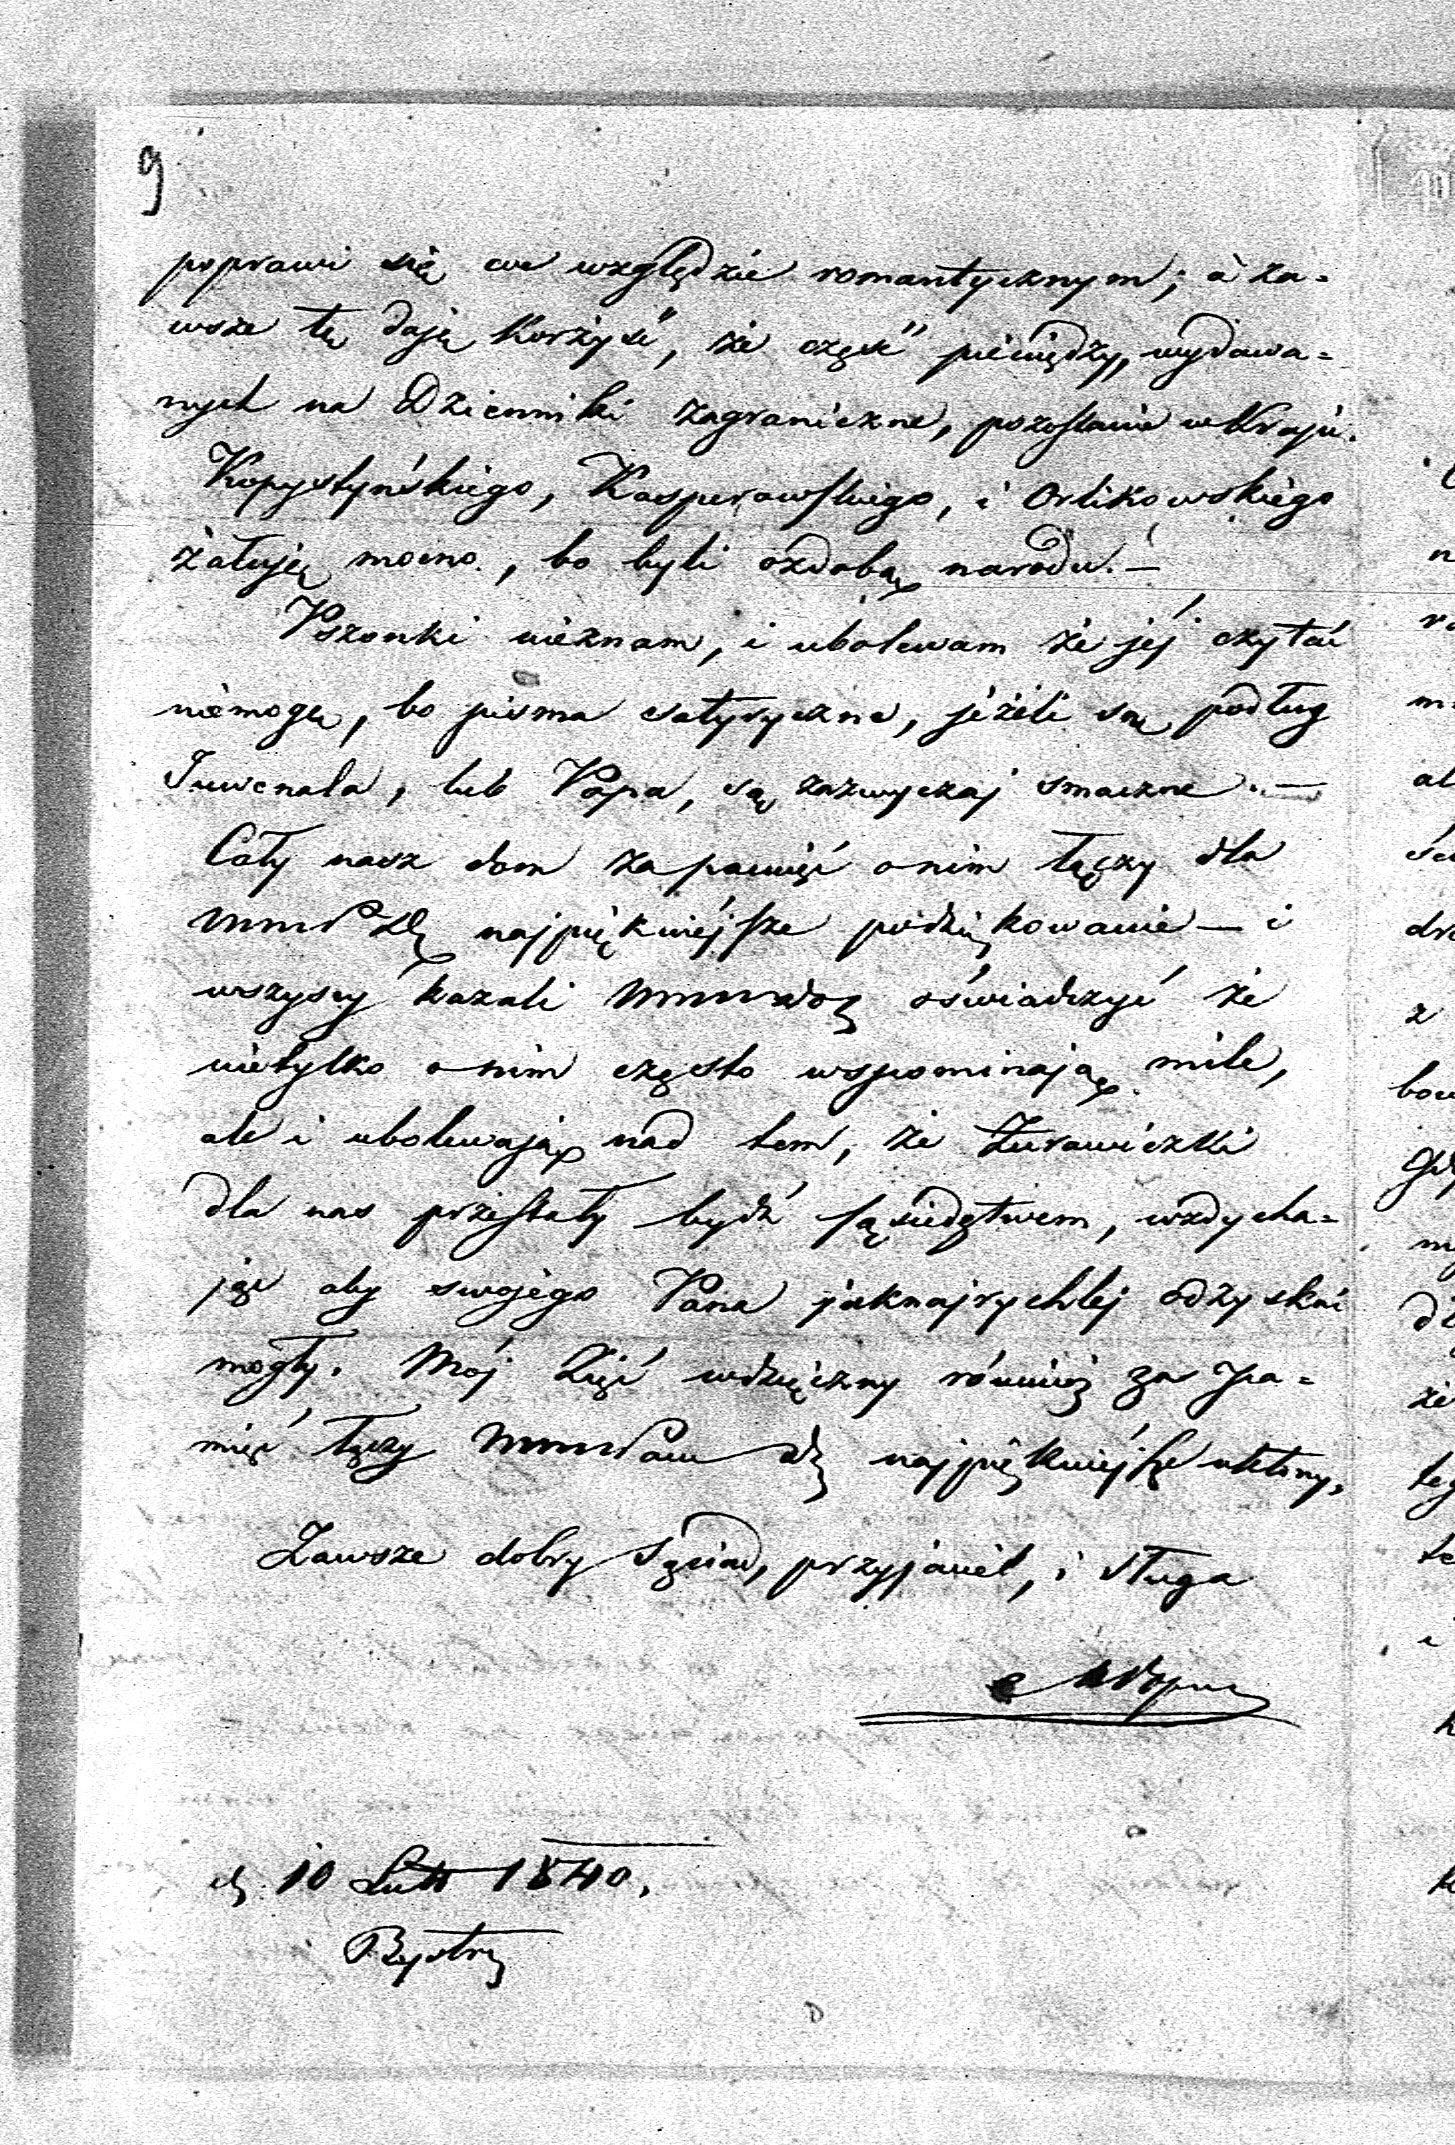 9
poprawi się we względzie romantycznym; à za=
wsze tę daję Korzyść, że część pieniędzy, wydawa=
nych na Dzienniki zagraniczne, pozostanie w Kraju.
Kopystyńskiego, Kasperowskiego, i Orlikowskiego
żałuję mocno, bo byli ozdobą narodu.—
Pszonki nieznam, i ubolewam że jéj czytać
niemogę, bo pisma satyryczne, jéżéli są podług
Juwenala, lub Popa, są zazwyczaj smaczne.—
Cały nasz dom za pamięć o nim łączy dla
najpiękniéjsze podziękowanie — i
wszyscy kazali oświadczyć że
nietylko o nim często wspominają mile,
ale i ubolewają nad tem, że Żurawiczki
dla nas przestały bydź sąsiedztwem, wzdycha=
jąc aby swojégo Pana jaknajrychléj odzyskać
mogły. Mój Zięć wdzięczny również za pa=
mięć łączy najpiękniéjsze ukłony.
Zawsze dobry Sąsiad, przyjaciel, i sługa
d. 10 Lut 1840.
Bystry